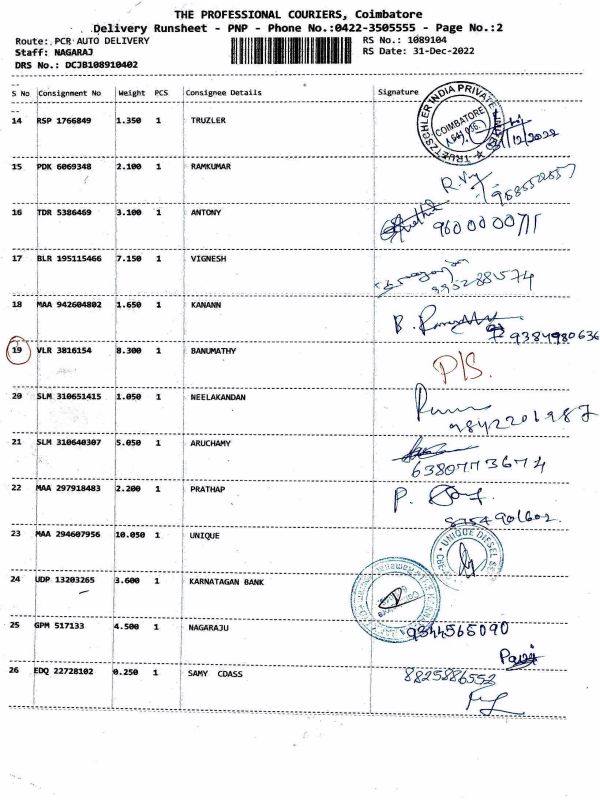 THE PROFESSIONAL COURIERS, Coimbatore
Delivery Runsheet - PNP - Phone No.:0422-3505555 - Page No.:2
Route: PCR AUTO DELIVERY RS No.: 1089104
Staff: NAGARAJ RS Date: 31-Dec-2022
DRS No.: DCJB108910402
S No Consignment No Weight PCS Consignee Details Signature
14 RSP 1766849 1.350 1 TRUZLER
TRUETZSCHLER INDIA PRIVATE LIMITED
COIMBATORE
15 PDK 6069348 2.100 1 RAMKUMAR
16 TDR 5386469 3.100 1 ANTONY
9600000711
17 BLR 195115466 7.150 1 VIGNESH
18 MAA 942604802 1.650 1 KANANN B.
9384980636
19 VLR 3816154 8.300 1 BANUMATHY P/S.
20 SLM 310651415 1.050 1 NEELAKANDAN
9842201987
21 SLM 310640307 5.050 1 ARUCHAMY
6380773674
22 MAA 297918483 2.200 1 PRATHAP P.
8754901602.
23 MAA 294607956 10.050 1 UNIQUE
UNIQUE DIESEL
24 UDP 13203265 3.600 1 KARNATAGAN BANK
25 GPM 517133 4.500 1 NAGARAJU 9344565090
26 EDQ 22728102 0.250 1 SAMY CDASS 8825886552